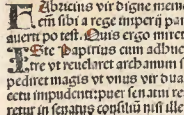 Fabricius vir digne memo
rem sibi a rege imperij par
auerti potest. Quis ergo miret
Iste Papirius cum adhuc
tre vt reuelaret archanum s
pediret magis vt vnus vir dua
ctu impudenti: puer senatui re
retur in senatus consiliū nisi ille